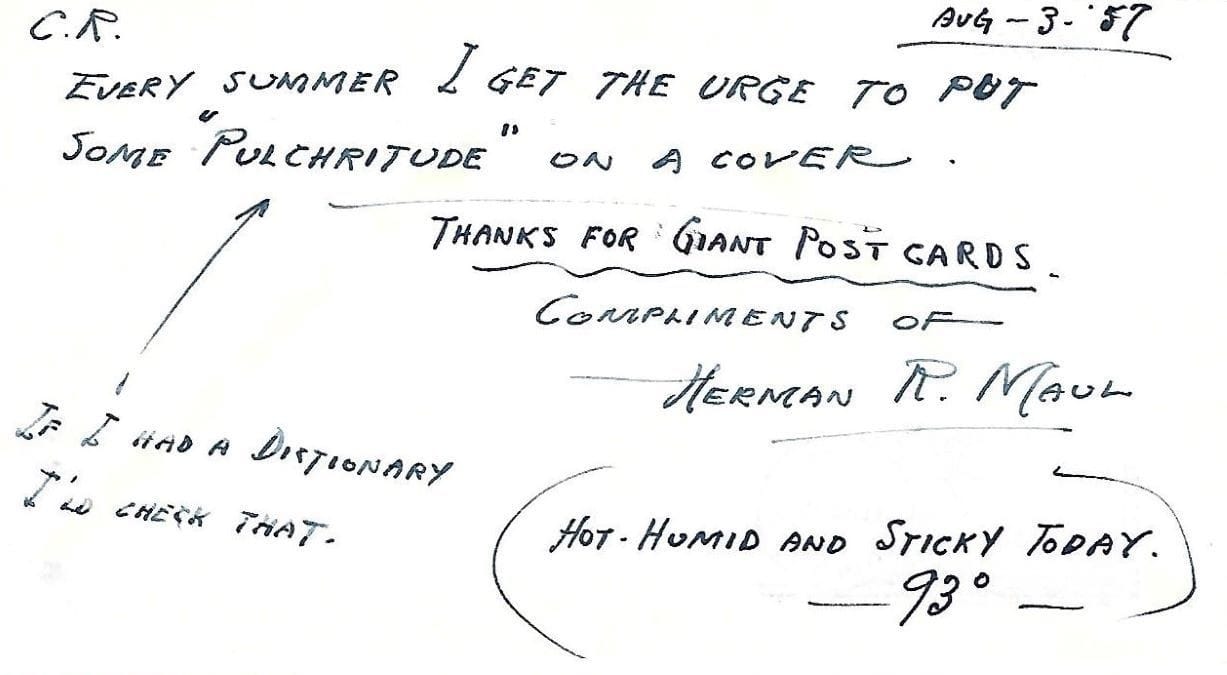 C.R.
AUG-3-'57
EVERY SUMMER I GET THE URGE TO PUT
SOME "PULCHRITUDE" ON A COVER.
THANKS FOR GIANT POST CARDS.
COMPLIMENTS OF
HERMAN R. MAUL
IF I HAD A DICTIONARY
I'LD CHECK THAT.
HOT-HUMID AND STICKY TODAY.
— 93° —